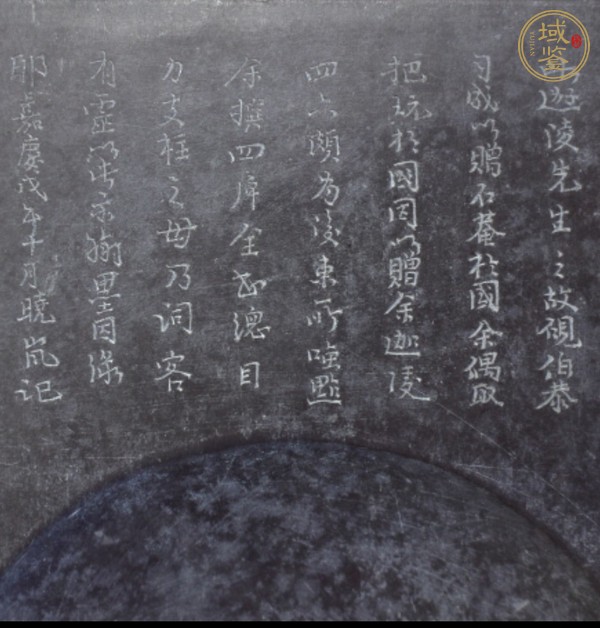 迦陵先生之故硯伯恭
司成以贈石菴相國余偶取
把玩相國因以贈余迦陵
四六頗為後來所嗤點
余撰四庫全書總目
力支柱之毋乃詞客
有靈以此示翰墨因緣
耶嘉慶戊午十月曉嵐記
域鉴
YUJIAN